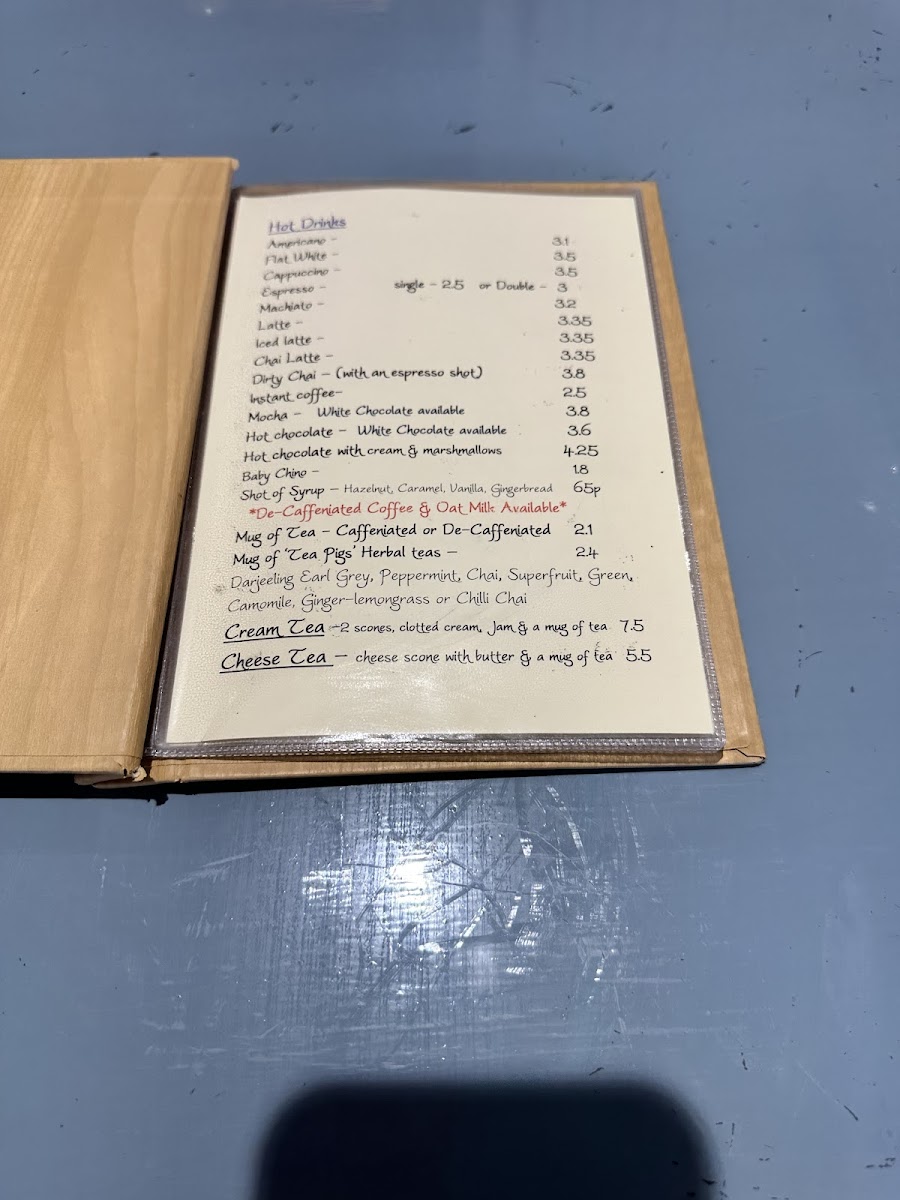 Hot Drinks
Americano - 3.1
Flat White - 3.5
Cappuccino - 3.5
Espresso - single - 2.5 or Double - 3
Machiato - 3.2
Latte - 3.35
Iced latte - 3.35
Chai Latte - 3.35
Dirty Chai - (with an espresso shot) 3.8
Instant coffee- 2.5
Mocha - White Chocolate available 3.8
Hot chocolate - White Chocolate available 3.6
Hot chocolate with cream & marshmallows 4.25
Baby Chino - 1.8
Shot of Syrup - Hazelnut, Caramel, Vanilla, Gingerbread 65p
*De-Caffeniated Coffee & Oat Milk Available*
Mug of Tea - Caffeniated or De-Caffeniated 2.1
Mug of 'Tea Pigs' Herbal teas - 2.4
Darjeeling Earl Grey, Peppermint, Chai, Superfruit, Green,
Camomile, Ginger-lemongrass or Chilli Chai
Cream Tea -2 scones, clotted cream, Jam & a mug of tea 7.5
Cheese Tea - cheese scone with butter & a mug of tea 5.5